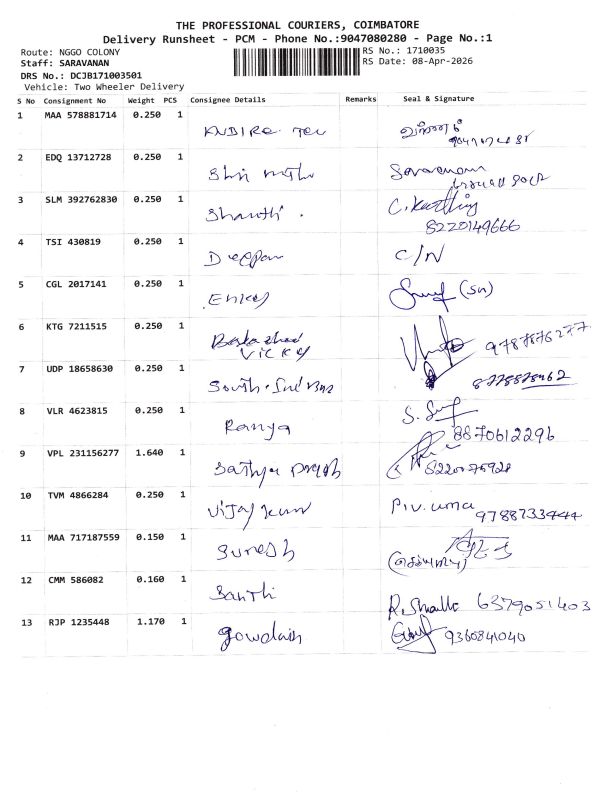 THE PROFESSIONAL COURIERS, COIMBATORE
Delivery Runsheet - PCM - Phone No.:9047080280 - Page No.:1
Route: NGGO COLONY
RS No.: 1710035
Staff: SARAVANAN
RS Date: 08-Apr-2026
DRS No.: DCJB171003501
Vehicle: Two Wheeler Delivery
S No Consignment No Weight PCS Consignee Details Remarks Seal & Signature
1 MAA 578881714 0.250 1
2 EDQ 13712728 0.250 1 Saravanan
3 SLM 392762830 0.250 1 Shanthi. C. Karthiq
8220149666
4 TSI 430819 0.250 1 Deeppan C/N
5 CGL 2017141 0.250 1 (Sn)
6 KTG 7211515 0.250 1 9787876277
Vicky
7 UDP 18658630 0.250 1 South. Ind Ban 8778878962
8 VLR 4623815 0.250 1 Ranya
8870612296
9 VPL 231156277 1.640 1 Sathya
10 TVM 4866284 0.250 1 Vijay kum P.V. uma
9788733444
11 MAA 717187559 0.150 1 Suresh
12 CMM 586082 0.160 1 Santhi
6379051403
13 RJP 1235448 1.170 1 gowdain 9360841040